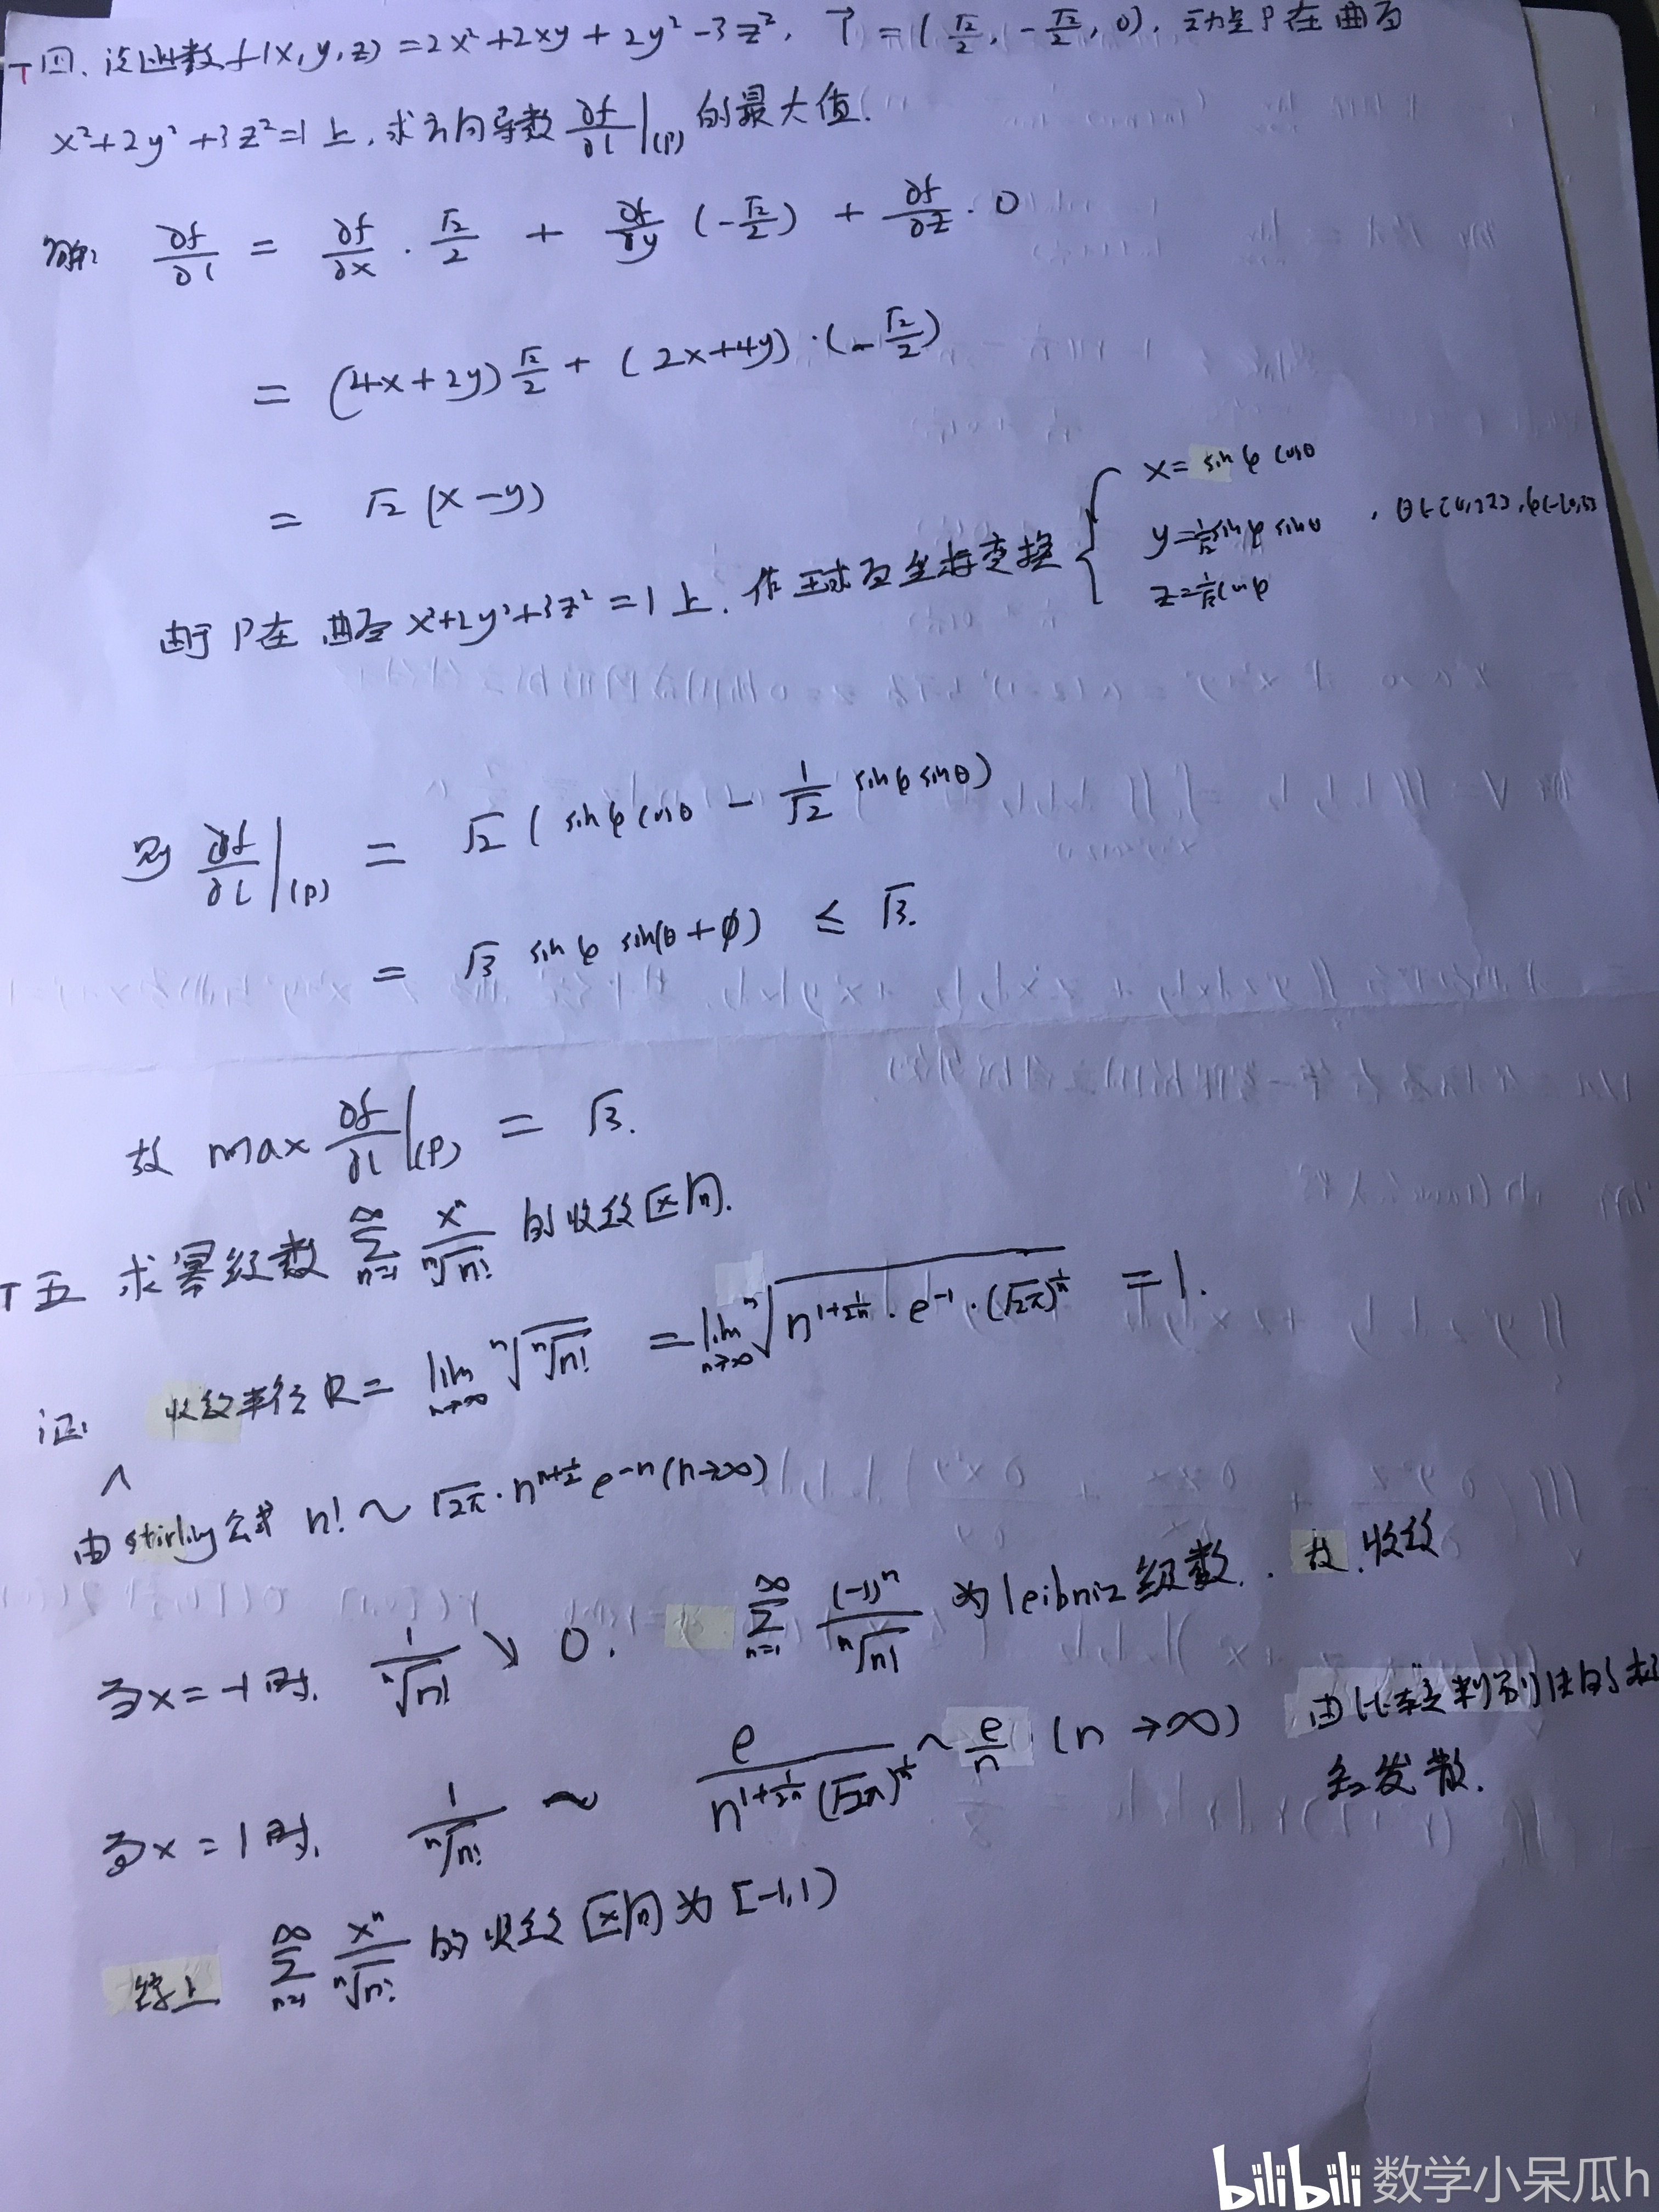 T四、设函数 f(x,y,z) = 2x²+2xy+2y²-3z², l⃗ = (√2/2, -√2/2, 0), 动点P在曲面
x²+2y²+3z²=1上,求方向导数 ∂f/∂l|(P) 的最大值.
解: ∂f/∂l = ∂f/∂x · √2/2 + ∂f/∂y (-√2/2) + ∂f/∂z · 0
= (4x+2y) √2/2 + (2x+4y)·(-√2/2)
= √2 (x-y)
由于P在曲面 x²+2y²+3z²=1上. 作球面坐标变换 { x= sinφ cosθ
y=1/√2 sinφ sinθ
z=1/√3 cosφ
, θ∈[0,2π], φ∈[0,π]
则 ∂f/∂l|(P) = √2 ( sinφ cosθ - 1/√2 sinφ sinθ)
= √3 sinφ sin(θ+ϕ) ≤ √3.
故 max ∂f/∂l|(P) = √3.
T五 求幂级数 ∑_{n=1}^{∞} xⁿ/ⁿ√n! 的收敛区间.
证: 收敛半径 R = lim_{n→∞} ⁿ√(ⁿ√n!) = lim_{n→∞} ⁿ√(n^{1+1/2n} · e^{-1} · (√2π)^{1/n}) = 1.
由stirling公式 n! ~ √2π · n^{n+1/2} e^{-n} (n→∞)
当x=-1时, 1/ⁿ√n! ↘ 0. ∑_{n=1}^{∞} (-1)ⁿ/ⁿ√n! 为leibniz级数. 故.收敛
当x=1时, 1/ⁿ√n! ~ e/(n^{1+1/2n} (√2π)^{1/n}) ~ e/n (n→∞) 由比较判别法的
知发散.
综上 ∑_{n=1}^{∞} xⁿ/ⁿ√n! 的收敛区间为 [-1,1)
bilibili 数学小呆瓜h